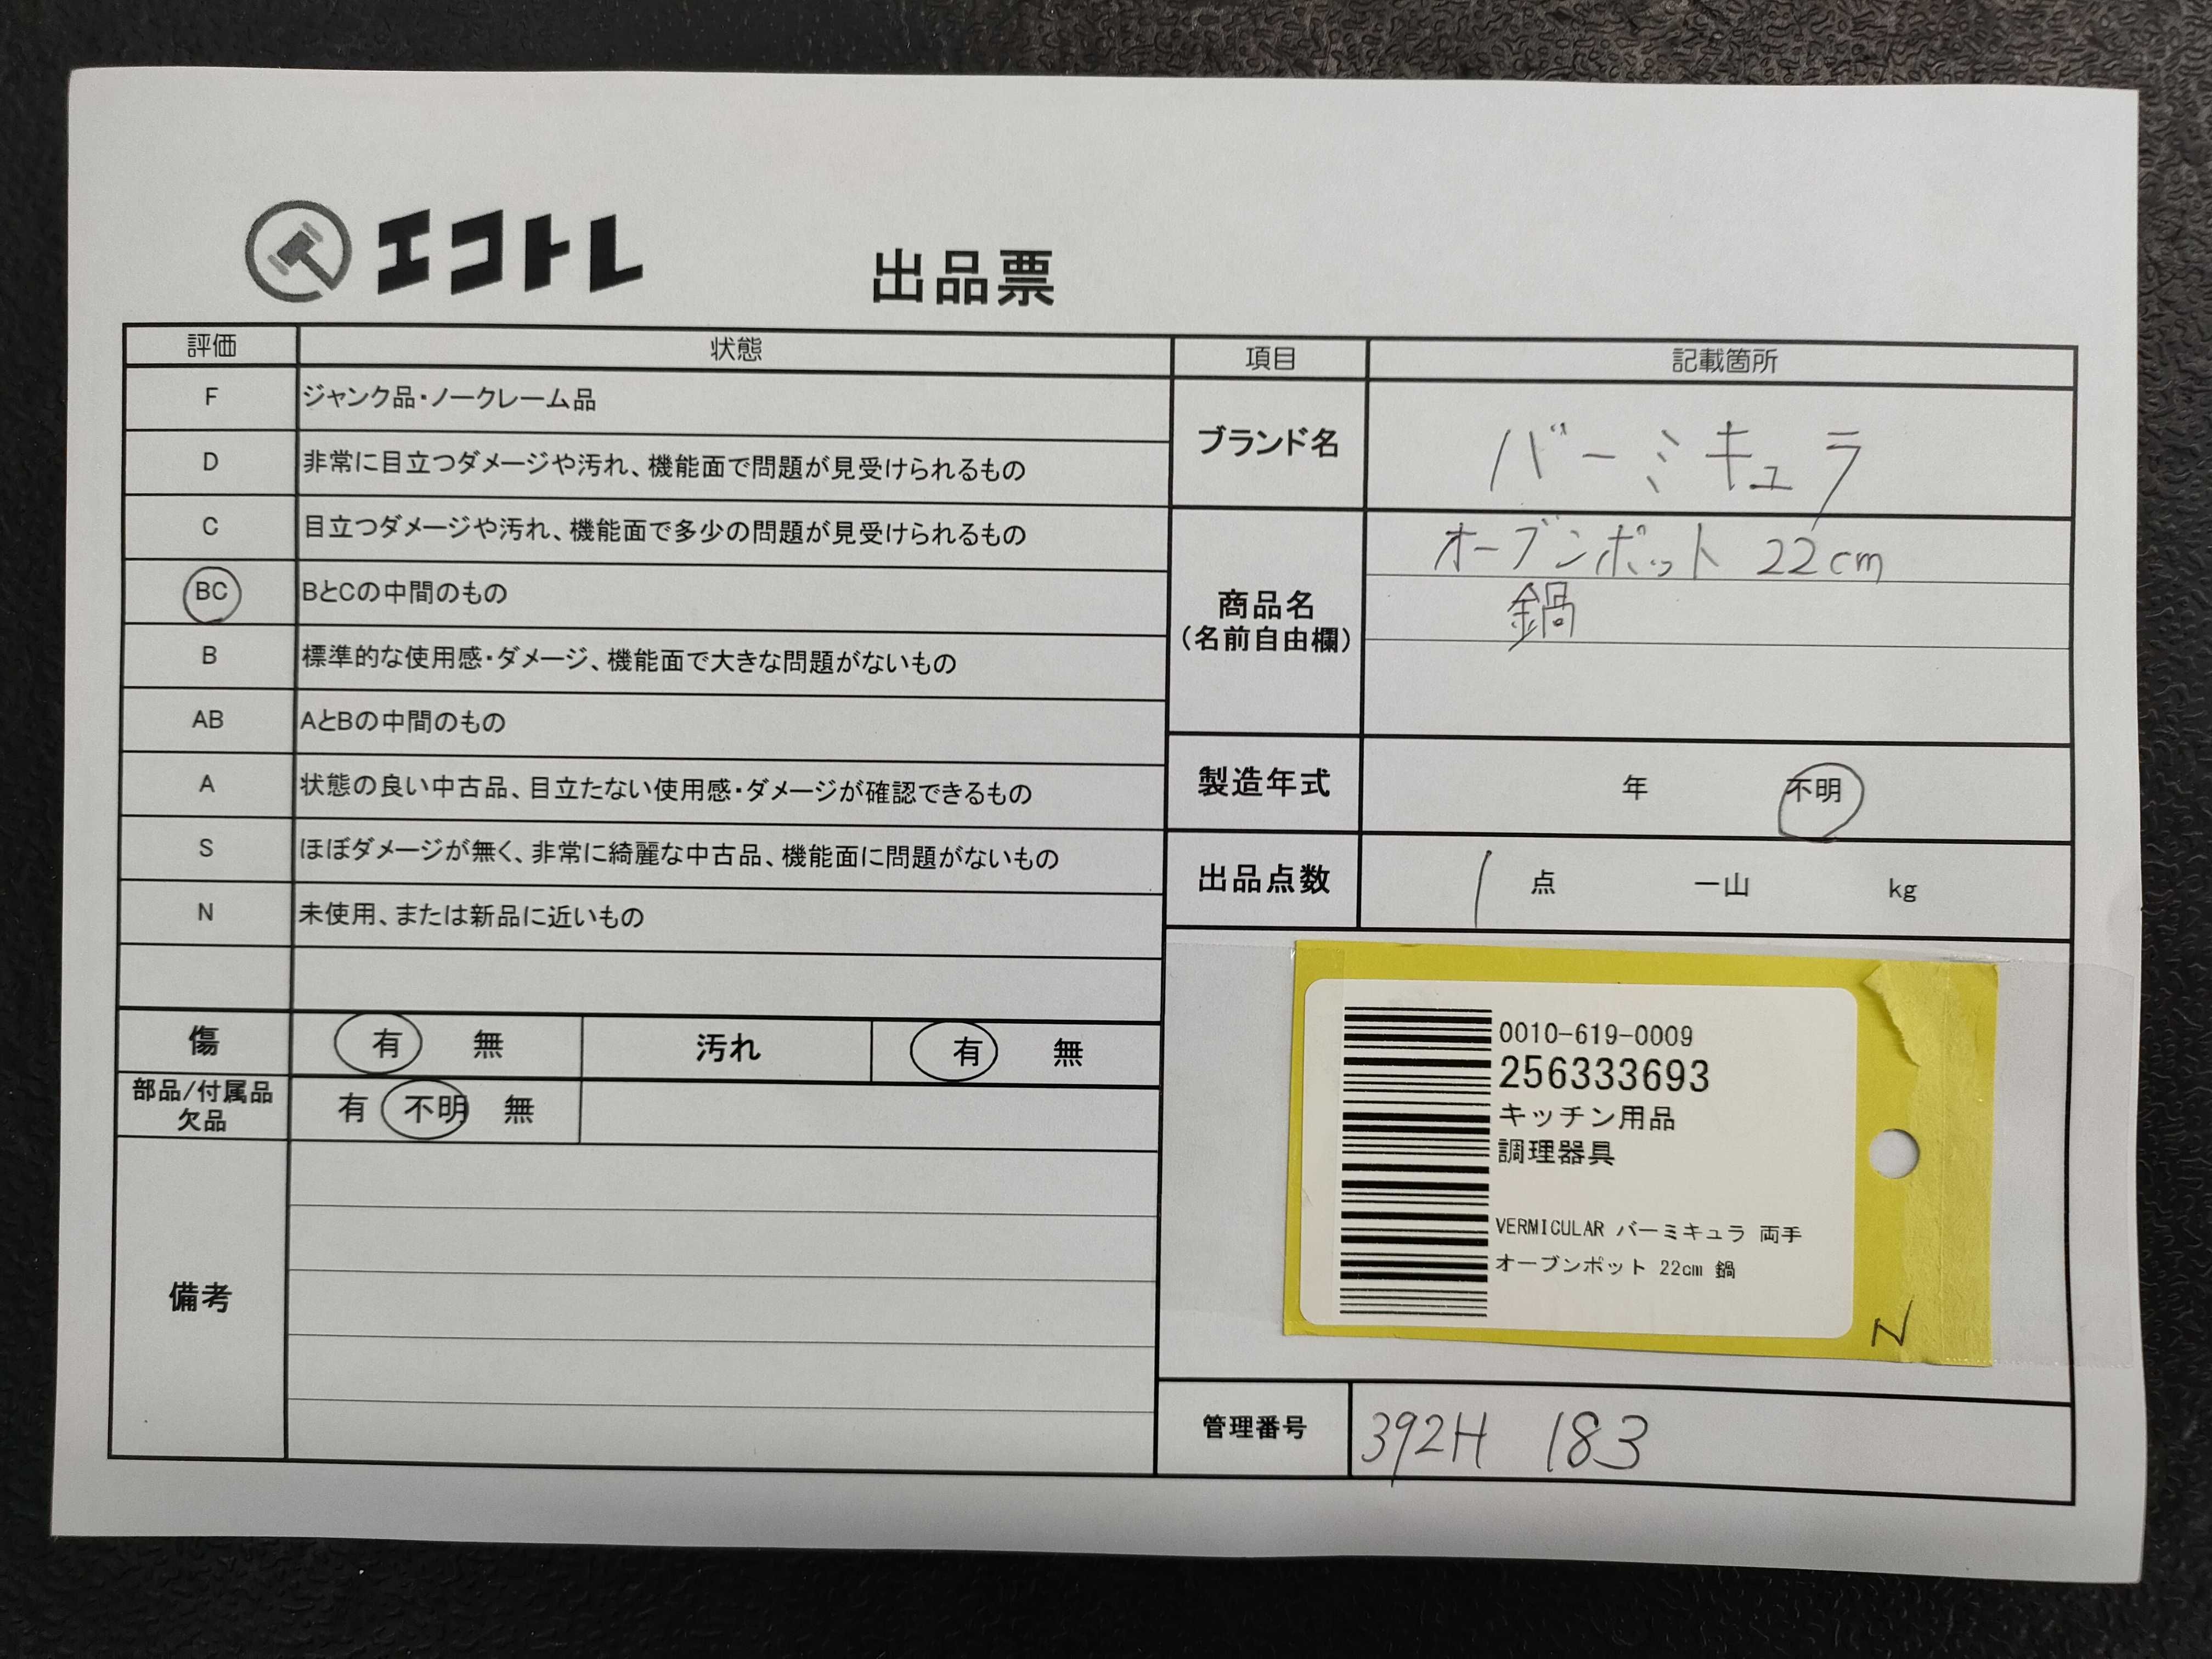 エコトレ
出品票
評価 状態
F ジャンク品・ノークレーム品
D 非常に目立つダメージや汚れ、機能面で問題が見受けられるもの
C 目立つダメージや汚れ、機能面で多少の問題が見受けられるもの
BC BとCの中間のもの
B 標準的な使用感・ダメージ、機能面で大きな問題がないもの
AB AとBの中間のもの
A 状態の良い中古品、目立たない使用感・ダメージが確認できるもの
S ほぼダメージが無く、非常に綺麗な中古品、機能面に問題がないもの
N 未使用、または新品に近いもの
傷 有 無 汚れ 有 無
部品/付属品
欠品 有 不明 無
備考
項目 記載箇所
ブランド名 バーミキュラ
商品名
(名前自由欄)
オーブンポット 22cm
鍋
製造年式 年 不明
出品点数 1 点 一山 kg
0010-619-0009
256333693
キッチン用品
調理器具
VERMICULAR バーミキュラ 両手
オーブンポット 22cm 鍋
N
管理番号 392H 183